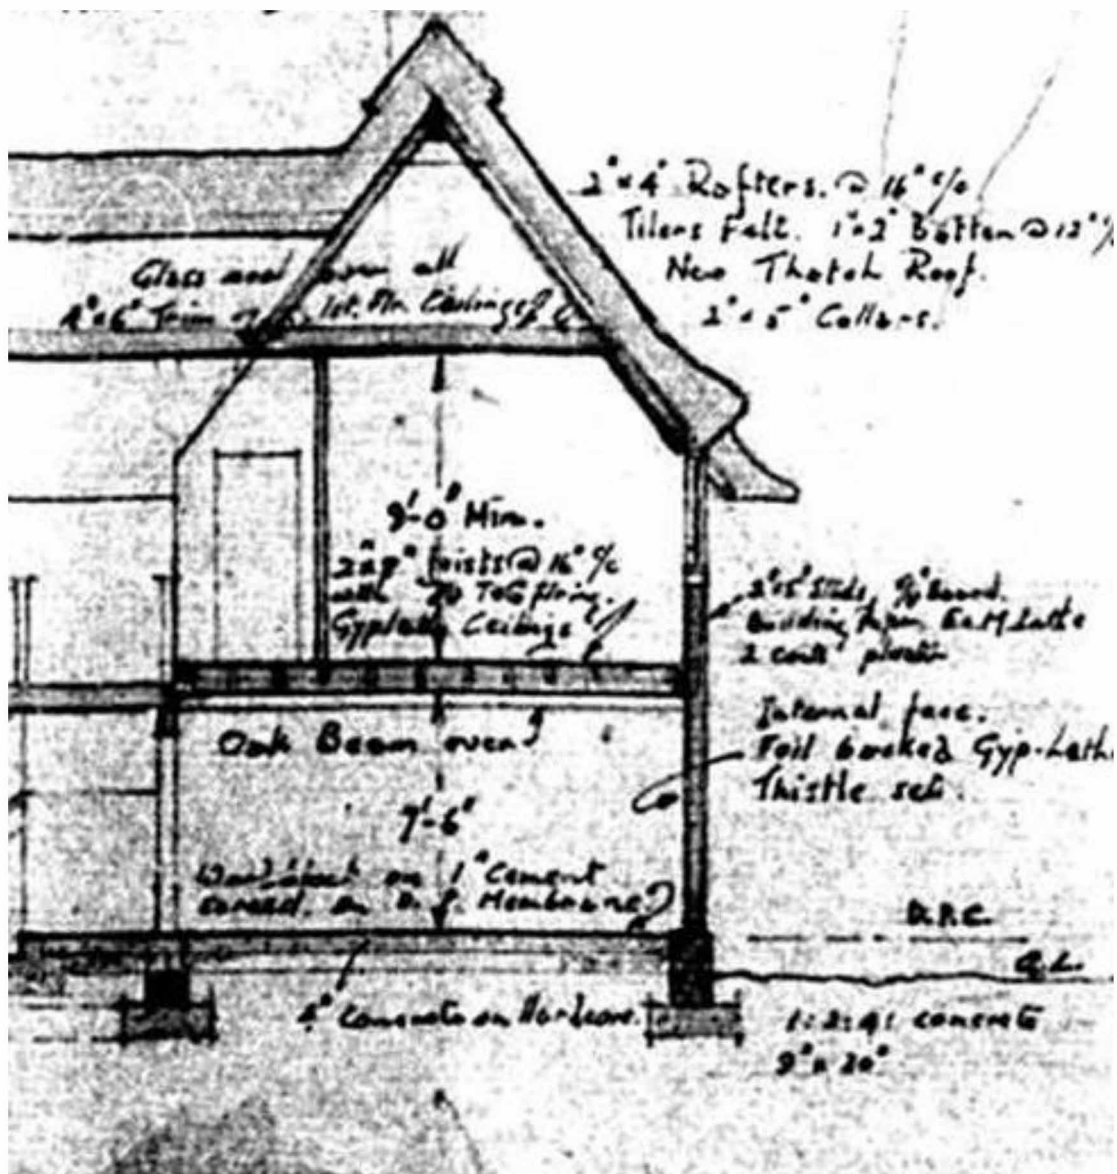 2" x 4" Rafters. @ 16" c/c
Tilers Felt. 1" x 2" Batten @ 12" c/
New Thatch Roof.
2" x 5" Collars.
Glass wool over all
4" x 6" Trim 1st. Flr. Ceilings
9'-0" Min.
2" x 8" Joists @ 16" c/c
with T&G flring.
Gyplath Ceilings
2" x 5" Studs, board.
Building Paper E.M. Laths
2 coats plaster
Oak Beam over
Internal face.
Foil backed Gyp-Lath.
Thistle set.
7'-6"
Wood block on 1" Cement
screed. on D.P. Membrane
D.P.C.
G.L.
4" Concrete on Hardcore.
1:2:4: concrete
9" x 20"